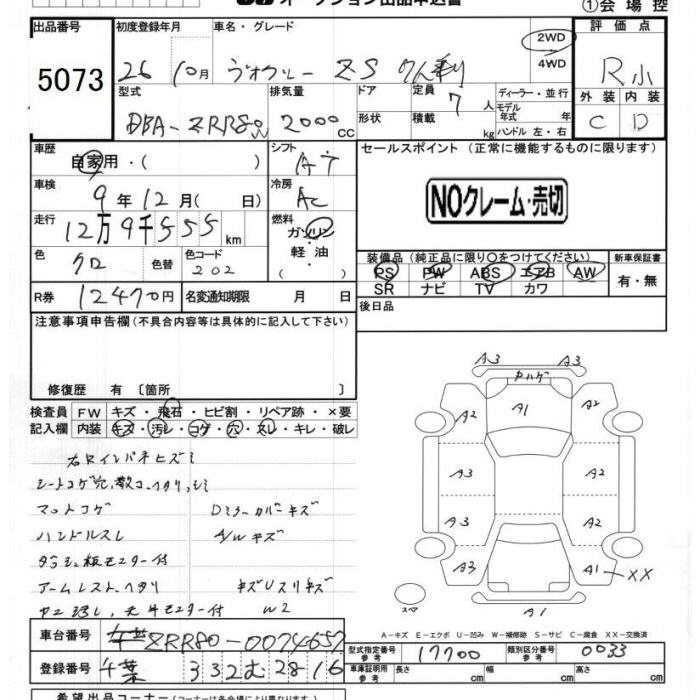 オークション出品申込書
①会場控
出品番号 初度登録年月 車名・グレード 2WD 4WD 評価点
5073 26 10月 ヴォクシー ZS R小
型式 排気量 ドア 定員 7 人 ディーラー・並行 外装 内装
DBA-ZRR80W 2000 CC 形状 積載 kg モデル年式 年式 ハンドル 左・右 C D
車歴 自家用・( ) シフト AT セールスポイント (正常に機能するものに限ります)
車検 9年12月( 日) 冷房 AC
NOクレーム・売切
走行 12万9千555km 燃料 ガソリン・軽油・( )
色 クロ 色替 色コード 202
装備品 (純正品に限り○をつけてください) 新車保証書
PS PW ABS エアB AW 有・無
SR ナビ TV カワ
R券 12470円 名変通知期限 月 日 後日品
注意事項申告欄 (不具合内容等は具体的に記入して下さい)
修復歴 有 〔箇所 〕
検査員記入欄 FW キズ・飛石・ヒビ割・リペア跡・×要
内装 キズ・汚レ・コゲ・穴・スレ・キレ・破レ
A3 A3
A2 A1 A2
A3 A2
A3 A2
A3 A1 XX
スペア A1
右Rインパネヒズミ
マットコゲ Dミラーカバーキズ
ハンドルスレ A/Wキズ
アームレスト、ヘタリ キズUスリキズ
W2
A-キズ E-エクボ U-凹み W-補修跡 S-サビ C-腐食 XX-交換済
車台番号 ZRR80-0074657 型式指定番号 参考 17700 類別区分番号 参考 0033
登録番号 千葉 332 む 2816 車庫証明用 参考 長さ cm 幅 cm 高さ cm
希望出品コーナー